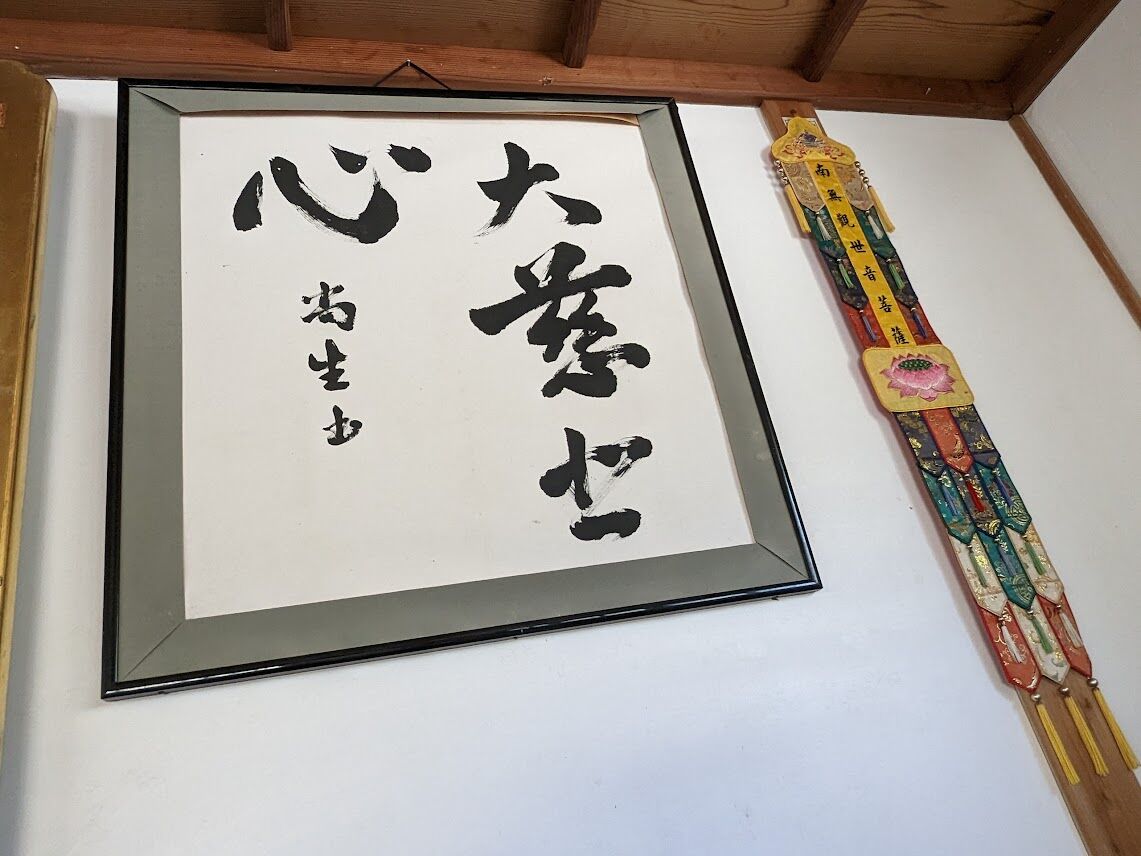 大慈悲
心
尚生書
南無觀世音菩薩